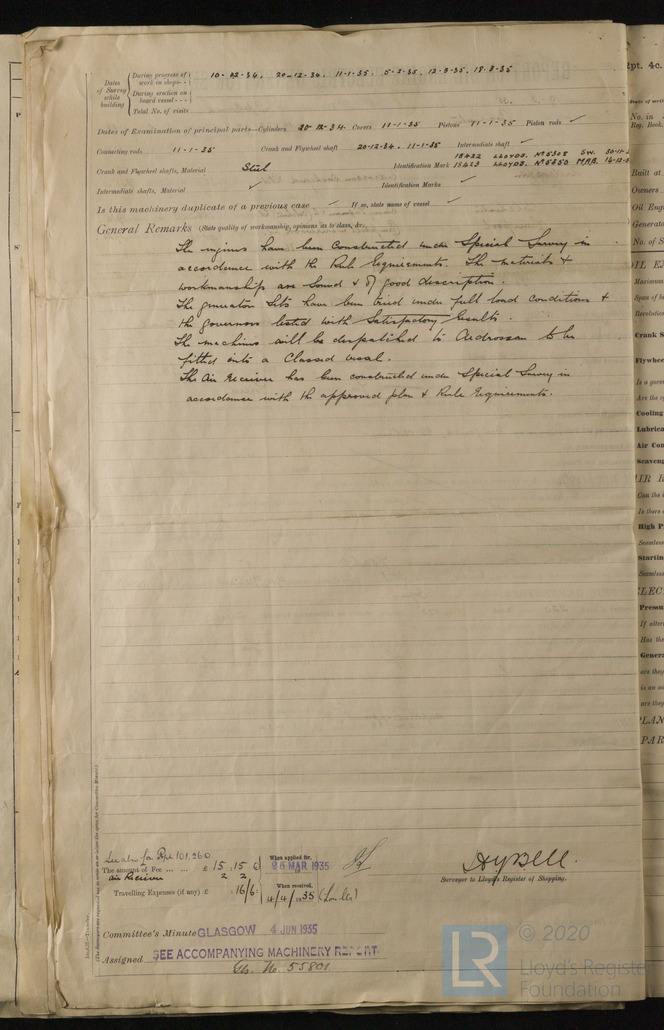 Dates of Survey while building
During progress of work in shops - - 10-12-34. 20-12-34. 11-1-35. 5-2-35. 12-3-35. 19-3-35
During erection on board vessel - - -
Total No. of visits
Dates of Examination of principal parts—Cylinders 20-12-34 Covers 11-1-35 Pistons 11-1-35 Piston rods ✓
Connecting rods 11-1-35 Crank and Flywheel shaft 20-12-34. 11-1-35 Intermediate shaft ✓
Crank and Flywheel shafts, Material Steel Identification Mark 18422 LLOYDS. Nº 5308 S.W. 30-11-3
18423 LLOYDS. Nº 5350 M.P.R.
Intermediate shafts, Material ✓ Identification Marks ✓
Is this machinery duplicate of a previous case ✓ If so, state name of vessel ✓
General Remarks (State quality of workmanship, opinions as to class, &c.
The engines have been constructed under Special Survey in
accordance with the Rule Requirements. The materials &
workmanship are sound & of good description.
The generator sets have been tried under full load conditions &
the governors tested with Satisfactory Results.
The machines will be despatched to Ardrossan to be
fitted into a Classed vessel.
The Air Receiver has been constructed under Special Survey in
accordance with the approved plan & Rule Requirements.
See also for Rpt 101,260
The amount of Fee ... ... £ 15 . 15 .
Air Receiver 2 2
When applied for, 26 MAR 1935
Travelling Expenses (if any) £ 16/6
When received, 4/4/1935
H y Bell.
Surveyor to Lloyd's Register of Shipping.
Committee's Minute GLASGOW 4 JUN 1935
Assigned SEE ACCOMPANYING MACHINERY REPORT.
55801
LR
© 2020
Lloyd's Register
Foundation
Rpt. 4c.
No. in
Reg. Book.
Built at
Owners
Oil Eng
Generato
No. of S
OIL E
Maximum
Span of b
Revolutio
Crank S
Flywhee
Is a gove
Are the c
Cooling
Lubrica
Air Com
Scaveng
AIR R
Can the i
Is there
High P
Seamless
Startin
Seamless
ELEC
Pressu
If alter
Has the
Genera
are they
is an a
are they
PLAN
PAR